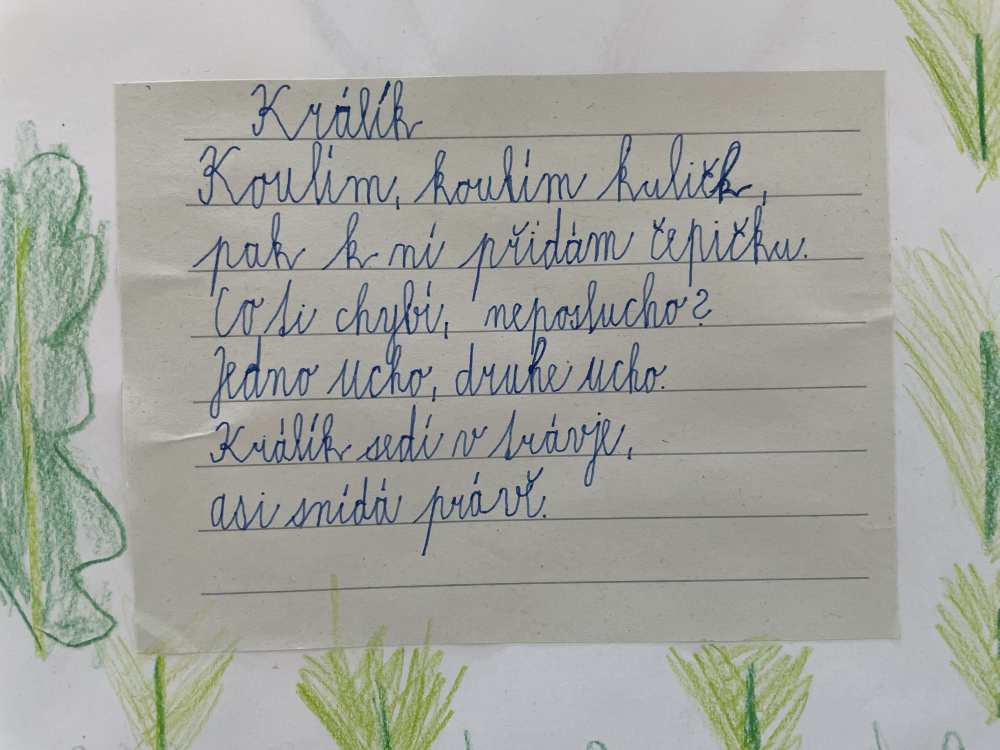 Králík
Koulím, koulím kuličk,
pak k ní přidám čepičku.
Co ti chybí, neposlucho?
Jedno ucho, druhe ucho.
Králík sedí v trávje,
asi snídá právě.